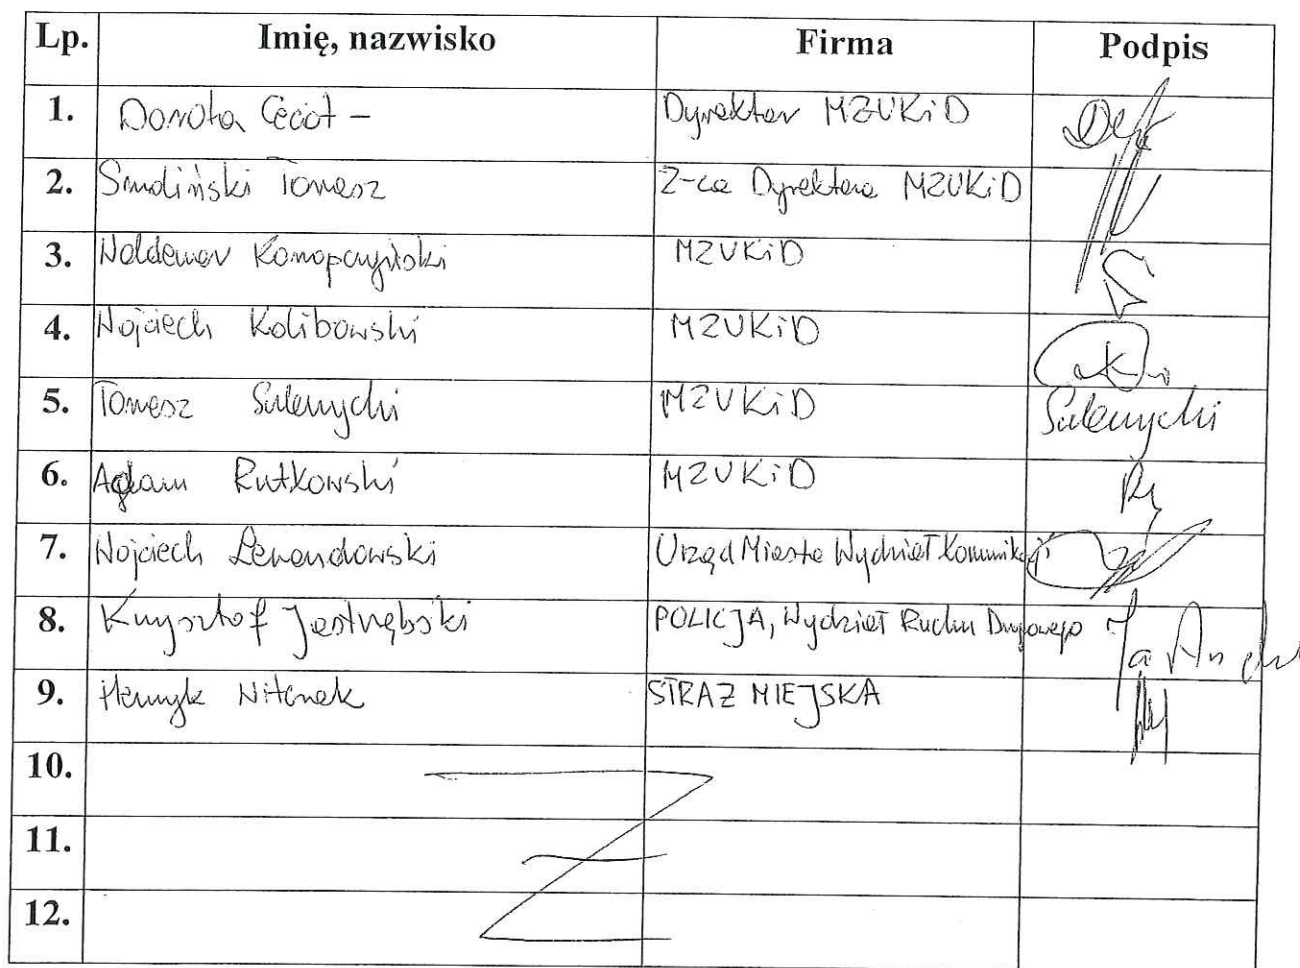 Lp. Imię, nazwisko Firma Podpis
1. Dorota Cecot – Dyrektor MZUKiD
2. Smoliński Tomasz Z-ca Dyrektora MZUKiD
3. Waldemar Konopczyński MZUKiD
4. Wojciech Kolibowski MZUKiD
5. Tomasz Sulemycki MZUKiD Sulemycki
6. Adam Rutkowski MZUKiD
7. Wojciech Lewandowski Urząd Miasta Wydział Komunikacji
8. Krzysztof Jastrzębski POLICJA, Wydział Ruchu Drogowego
9. Henryk Witenek STRAZ MIEJSKA
10.
11.
12.